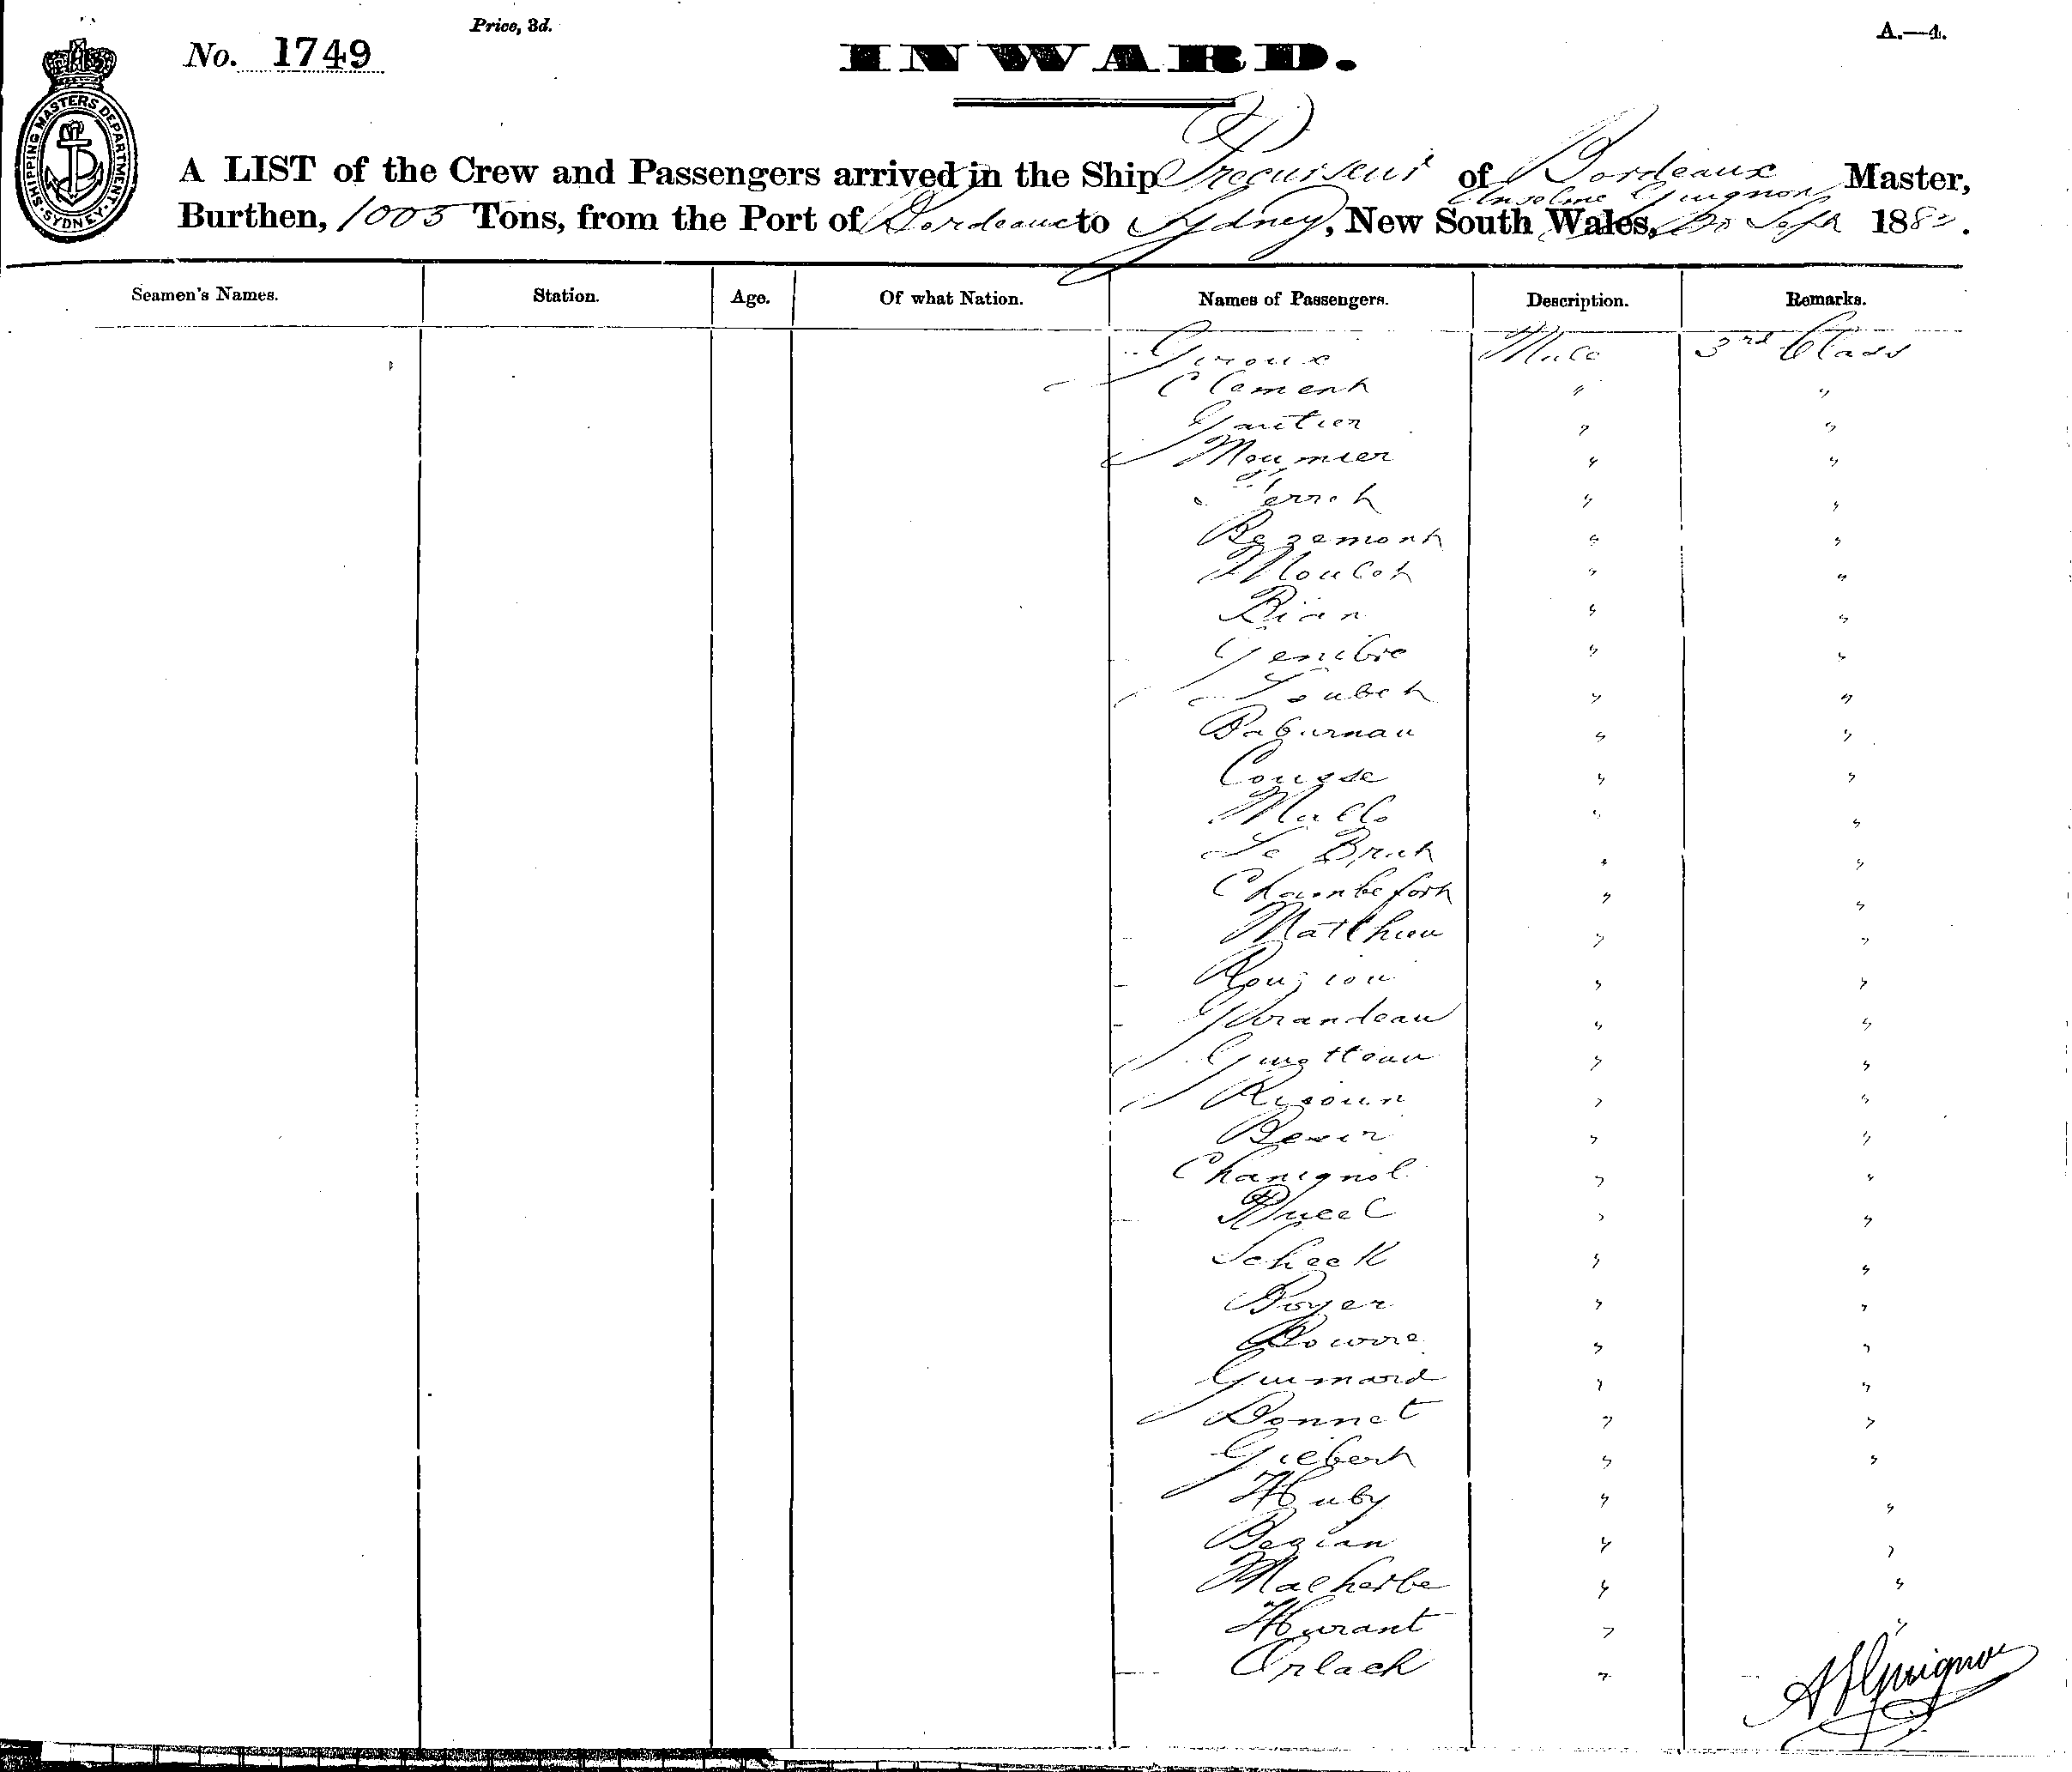 Price, 3d.
No. 1749
INWARD.
A.—4.
SHIPPING MASTERS DEPARTMENT. SYDNEY.
A LIST of the Crew and Passengers arrived in the Ship Precurseur of Bordeaux Master,
Anselme Guignon
Burthen, 1005 Tons, from the Port of Bordeaux to Sydney, New South Wales, Sepr 188
Seamen's Names. Station. Age. Of what Nation. Names of Passengers. Description. Remarks.
Giroux Male 3rd Class
Clement " "
Gautier " "
Moumier " "
" "
Bezemont " "
Moulet " "
Rian " "
Genibre " "
Loubet " "
Paburnau " "
" "
Mallo " "
Le Brut " "
Chambefort " "
Matthieu " "
" "
Girandeau " "
Guotteau " "
" "
" "
Chanignol " "
" "
Scheek " "
Boyer " "
" "
Guimard " "
Donnet " "
Giebert " "
Huby " "
Begian " "
Malherbe " "
Hurant " "
Orlach "
A Guignon